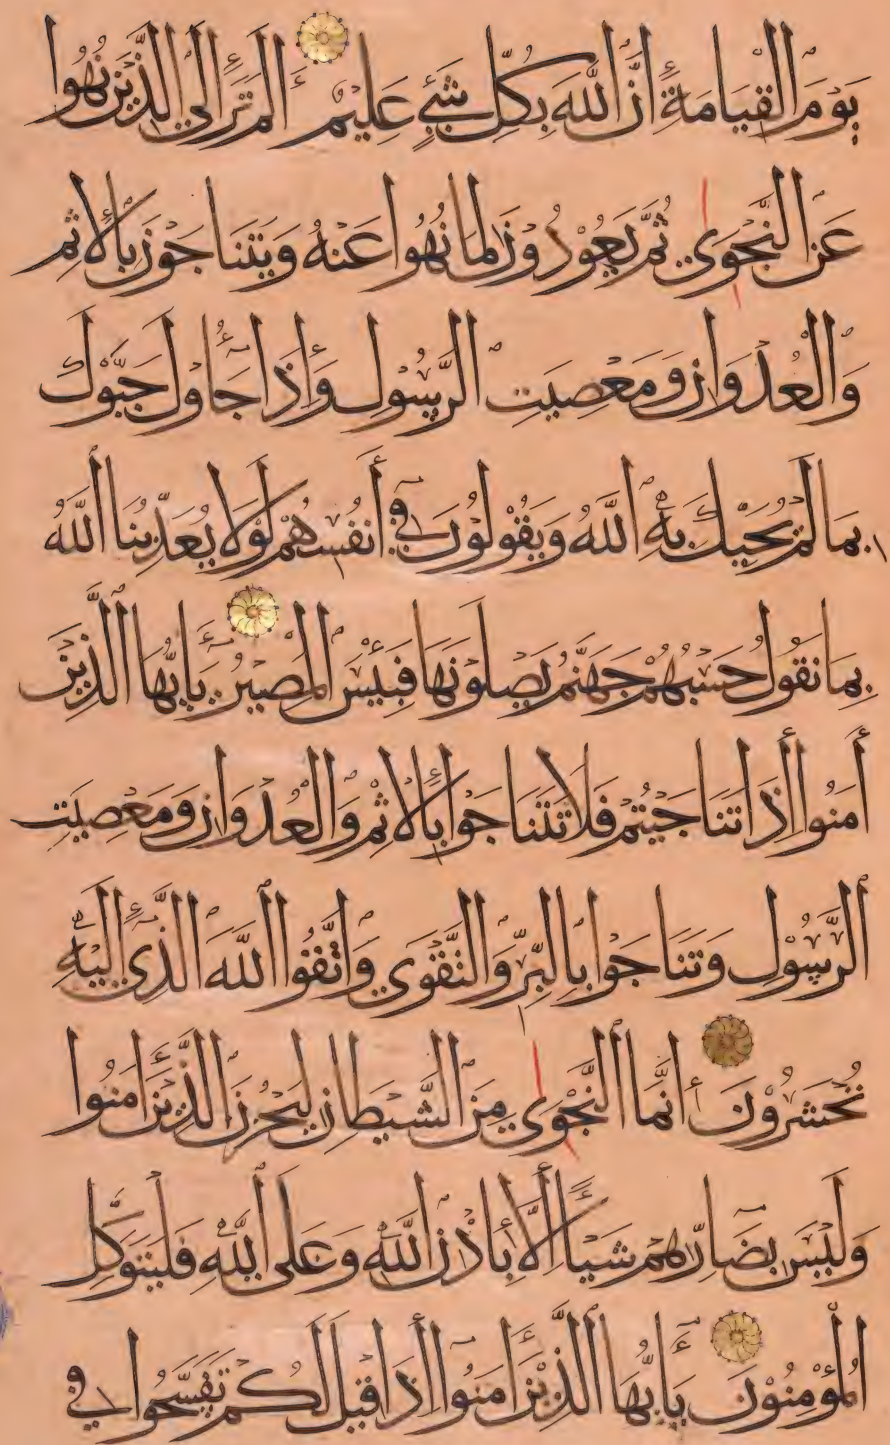 يَوْمَ الْقِيَامَةِ إِنَّ اللَّهَ بِكُلِّ شَيْءٍ عَلِيمٌ أَلَمْ تَرَ إِلَى الَّذِينَ نُهُوا
عَنِ النَّجْوَى ثُمَّ يَعُودُونَ لِمَا نُهُوا عَنْهُ وَيَتَنَاجَوْنَ بِالْإِثْمِ
وَالْعُدْوَانِ وَمَعْصِيَتِ الرَّسُولِ وَإِذَا جَاؤُكَ حَيَّوْكَ
بِمَا لَمْ يُحَيِّكَ بِهِ اللَّهُ وَيَقُولُونَ فِي أَنْفُسِهِمْ لَوْلَا يُعَذِّبُنَا اللَّهُ
بِمَا نَقُولُ حَسْبُهُمْ جَهَنَّمُ يَصْلَوْنَهَا فَبِئْسَ الْمَصِيرُ يَا أَيُّهَا الَّذِينَ
آمَنُوا إِذَا تَنَاجَيْتُمْ فَلَا تَتَنَاجَوْا بِالْإِثْمِ وَالْعُدْوَانِ وَمَعْصِيَتِ
الرَّسُولِ وَتَنَاجَوْا بِالْبِرِّ وَالتَّقْوَى وَاتَّقُوا اللَّهَ الَّذِي إِلَيْهِ
تُحْشَرُونَ إِنَّمَا النَّجْوَى مِنَ الشَّيْطَانِ لِيَحْزُنَ الَّذِينَ آمَنُوا
وَلَيْسَ بِضَارِّهِمْ شَيْئًا إِلَّا بِإِذْنِ اللَّهِ وَعَلَى اللَّهِ فَلْيَتَوَكَّلِ
الْمُؤْمِنُونَ يَا أَيُّهَا الَّذِينَ آمَنُوا إِذَا قِيلَ لَكُمْ تَفَسَّحُوا فِي